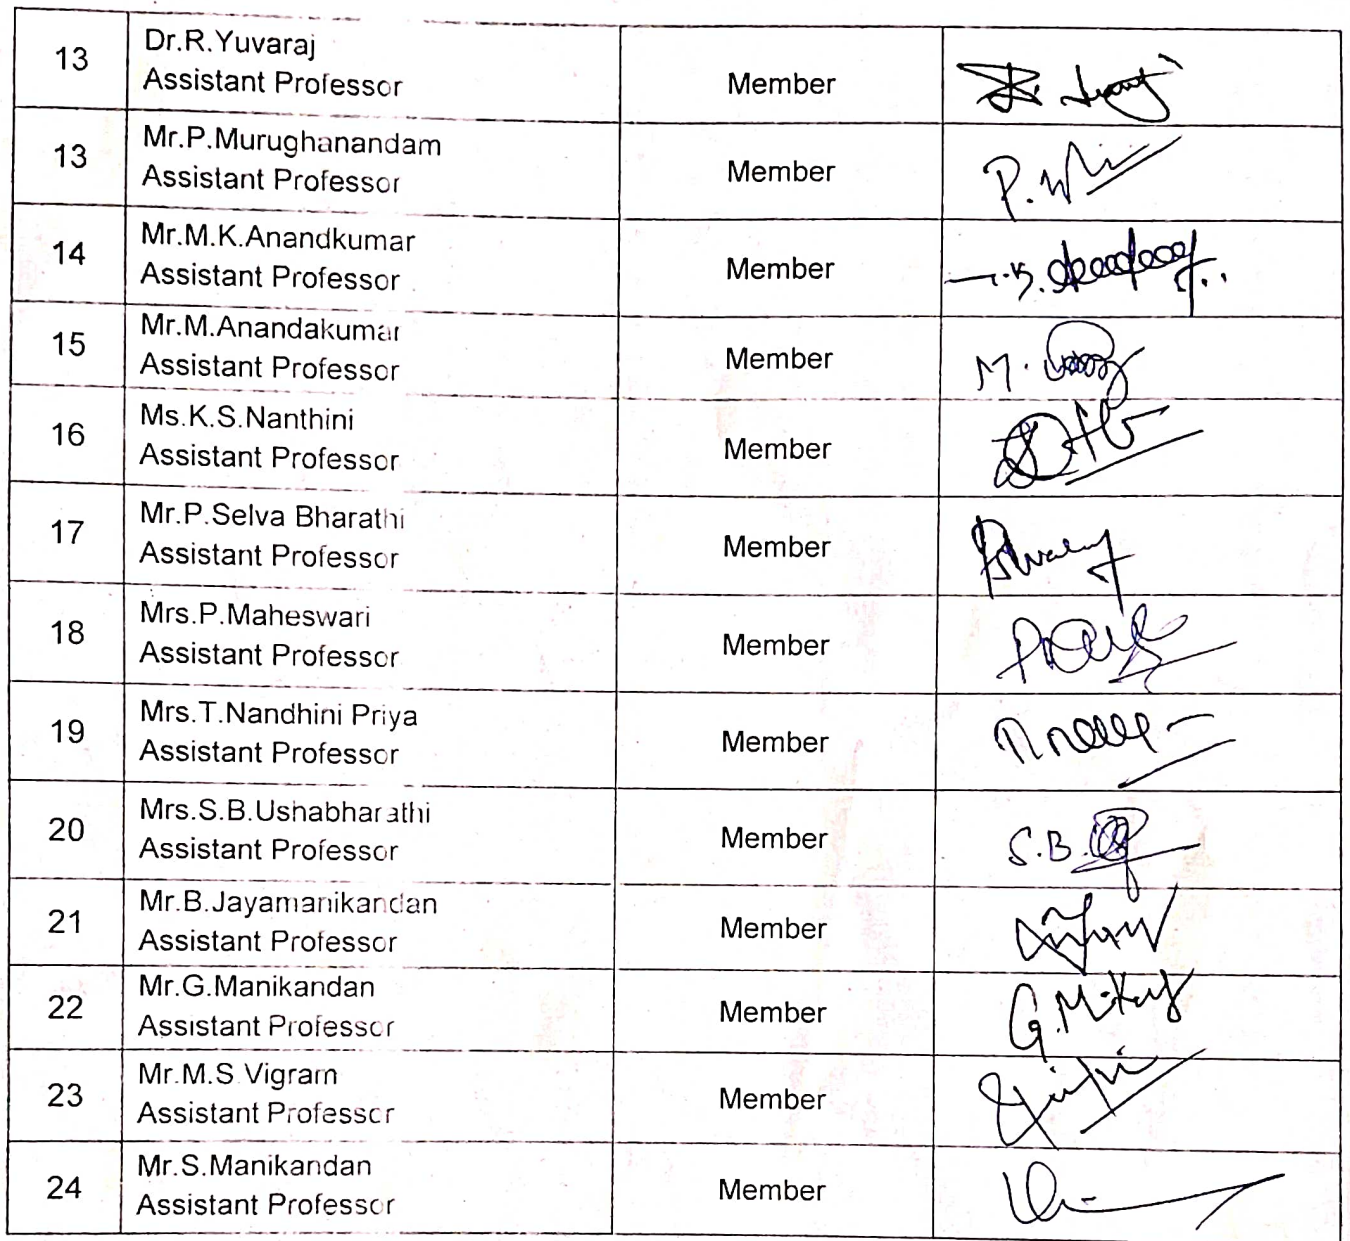 13 Dr.R.Yuvaraj
Assistant Professor Member
13 Mr.P.Murughanandam
Assistant Professor Member
14 Mr.M.K.Anandkumar
Assistant Professor Member
15 Mr.M.Anandakumar
Assistant Professor Member M.
16 Ms.K.S.Nanthini
Assistant Professor Member
17 Mr.P.Selva Bharathi
Assistant Professor Member
18 Mrs.P.Maheswari
Assistant Professor Member
19 Mrs.T.Nandhini Priya
Assistant Professor Member
20 Mrs.S.B.Ushabharathi
Assistant Professor Member S.B.
21 Mr.B.Jayamanikandan
Assistant Professor Member
22 Mr.G.Manikandan
Assistant Professor Member
23 Mr.M.S.Vigram
Assistant Professor Member
24 Mr.S.Manikandan
Assistant Professor Member